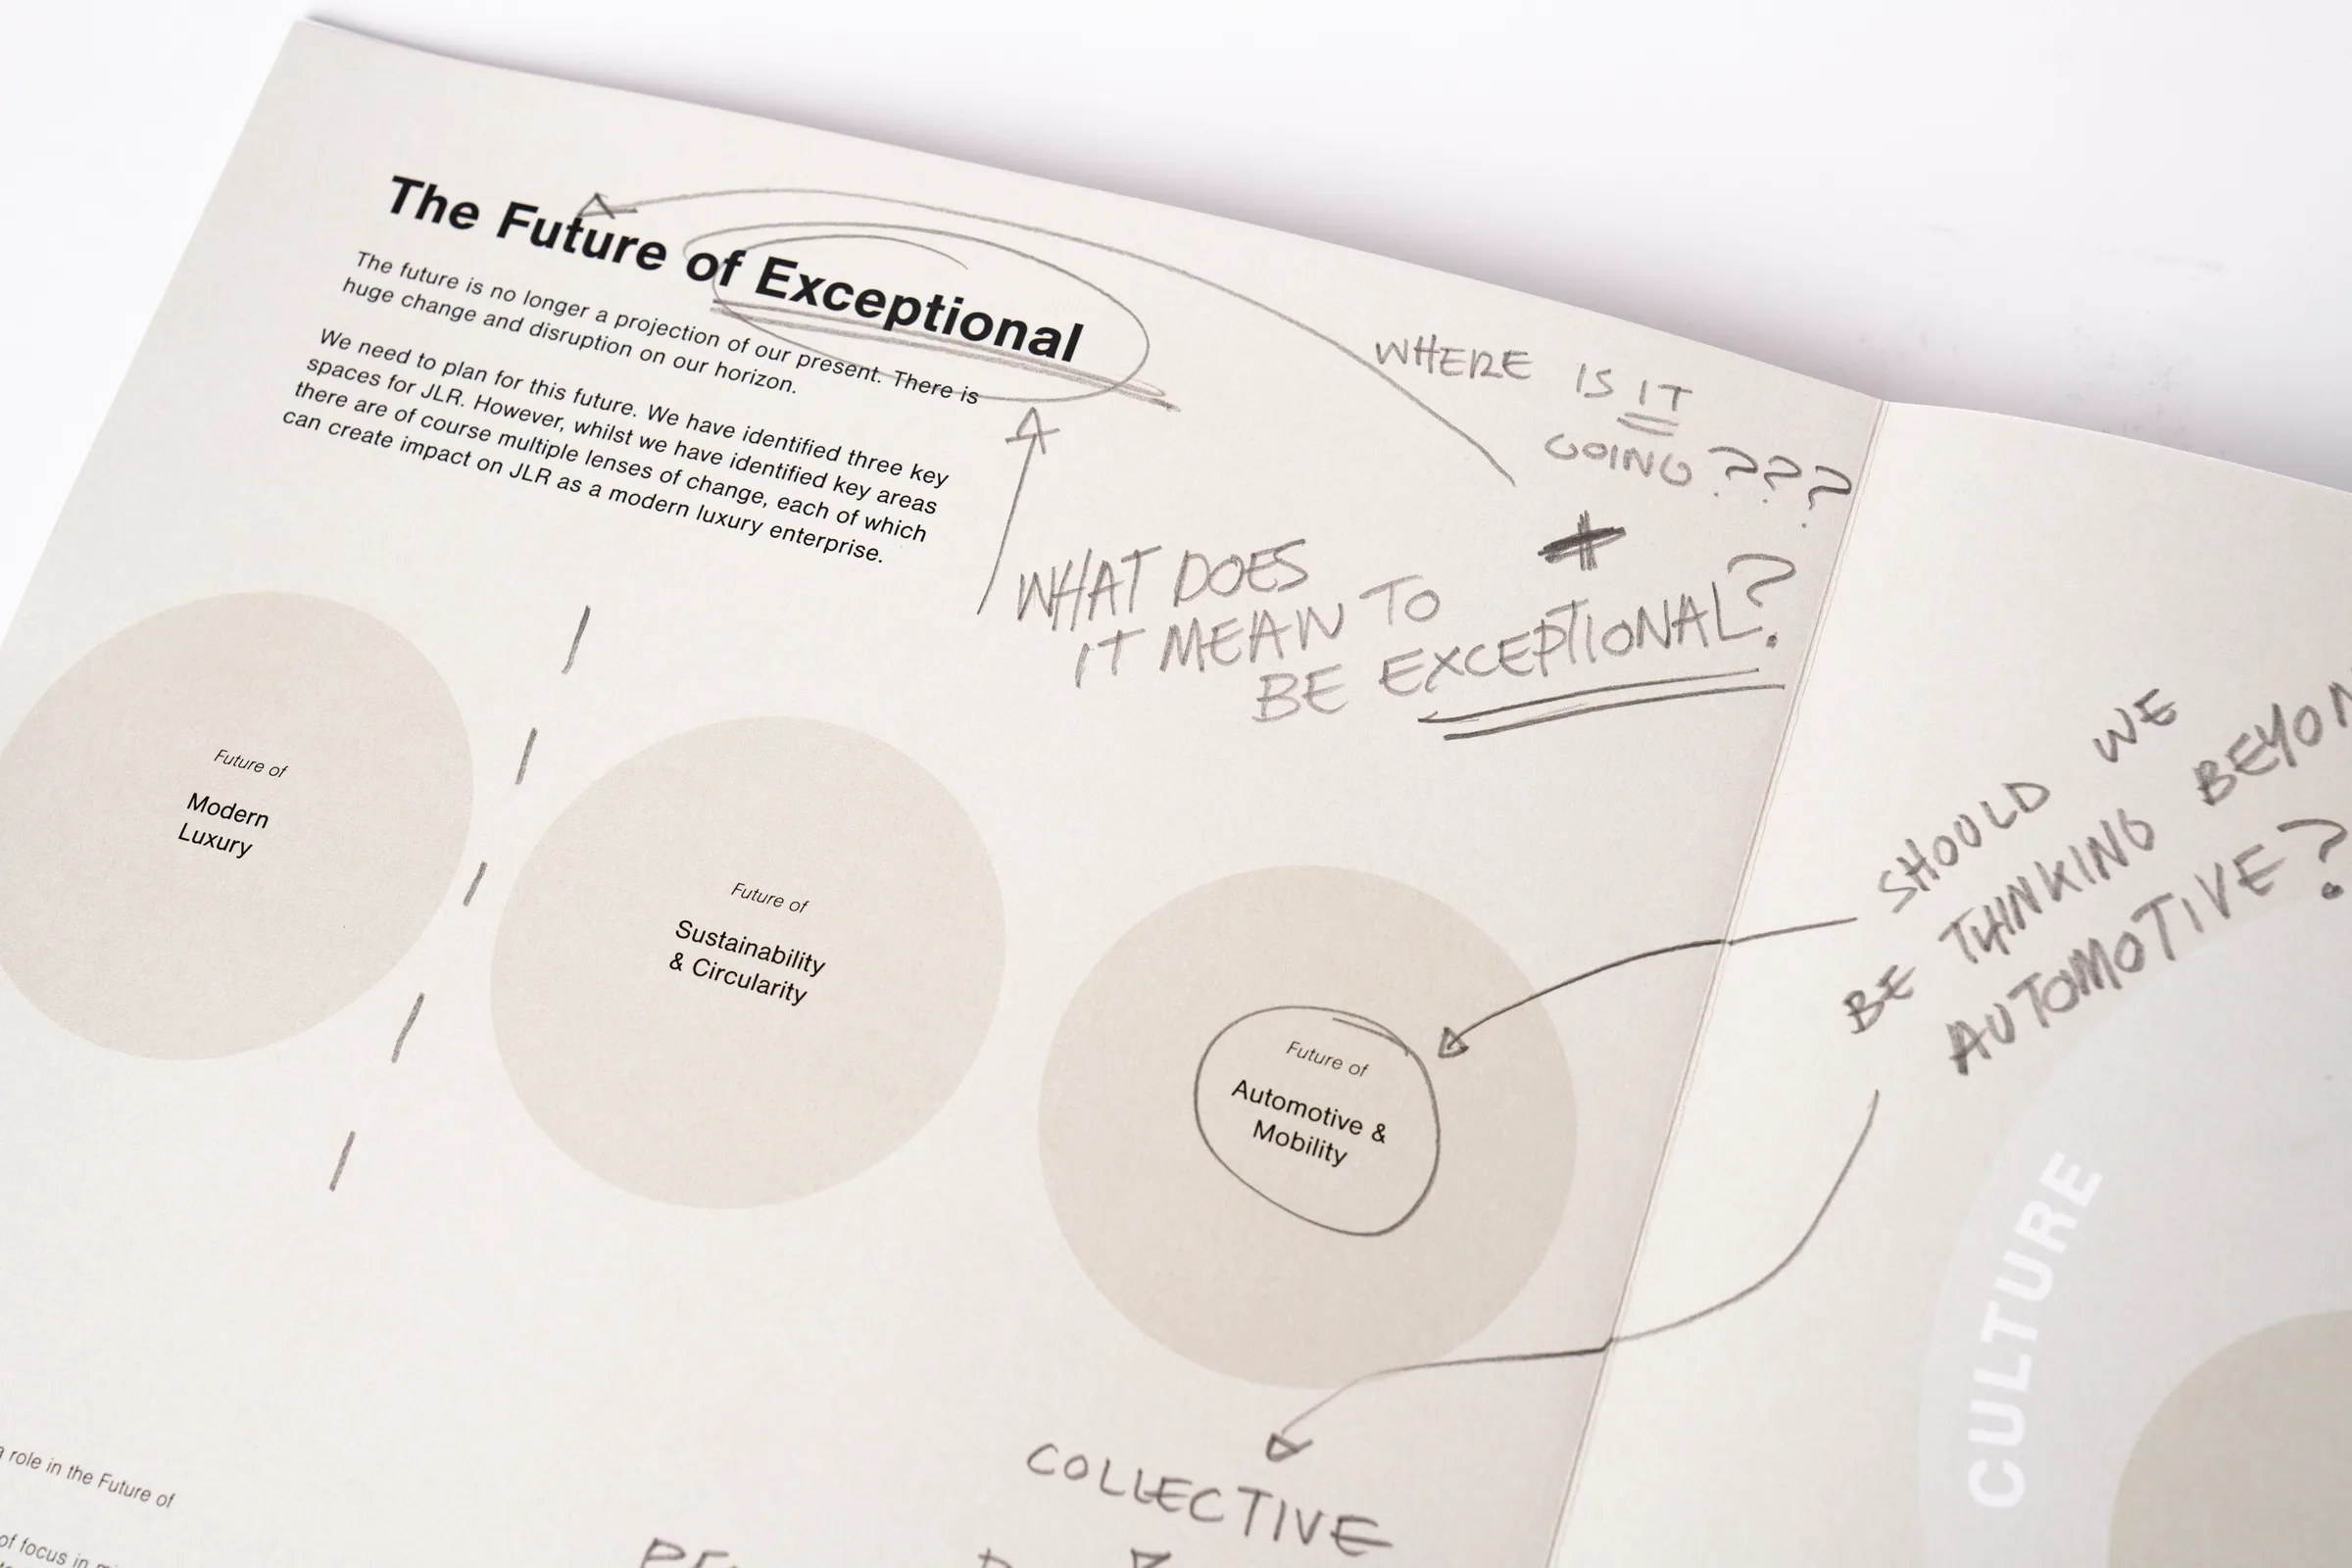 The Future of Exceptional
The future is no longer a projection of our present. There is
huge change and disruption on our horizon.
We need to plan for this future. We have identified three key
spaces for JLR. However, whilst we have identified key areas
there are of course multiple lenses of change, each of which
can create impact on JLR as a modern luxury enterprise.
WHERE IS IT
GOING ???
WHAT DOES
IT MEAN TO
BE EXCEPTIONAL?
Future of
Modern
Luxury
Future of
Sustainability
& Circularity
Future of
Automotive &
Mobility
SHOULD WE
BE THINKING
AUTOMOTIVE?
CULTURE
COLLECTIVE
role in the Future of
of focus in